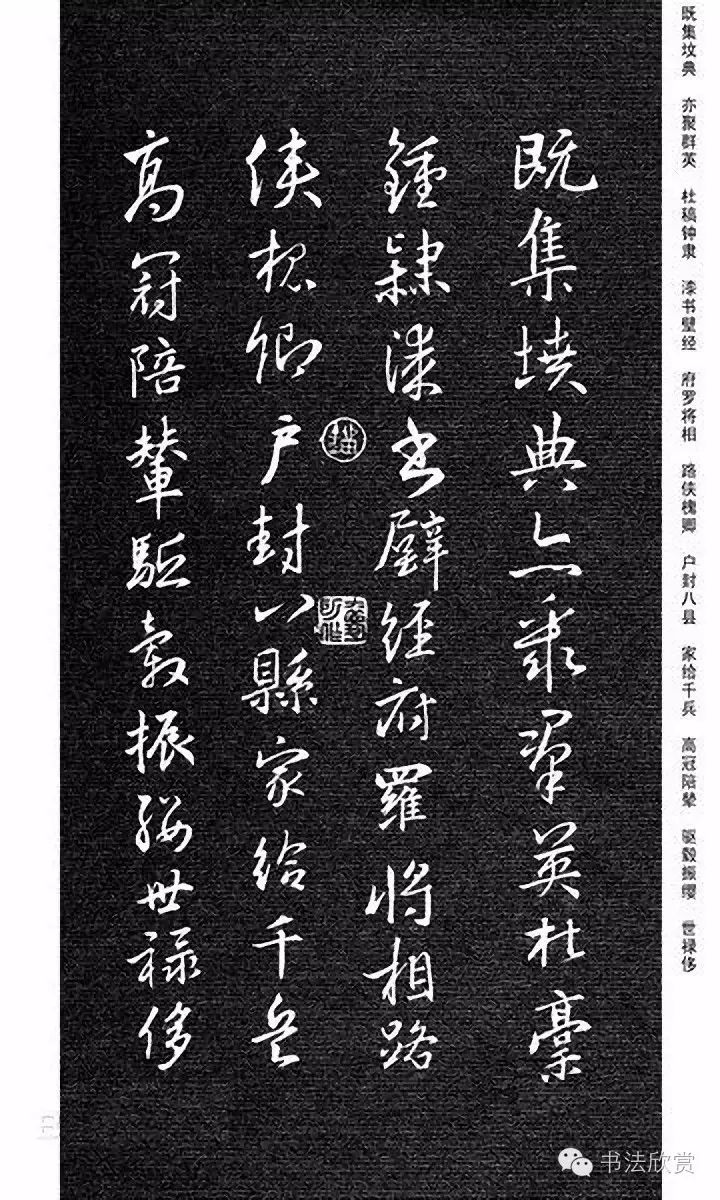 既集墳典亦聚羣英杜稾
鍾隸漆書壁經府羅將相路
俠槐卿户封八縣家給千兵
高冠陪輦驅轂振纓世禄侈
既集坟典 亦聚群英 杜稿钟隶 漆书壁经 府罗将相 路侠槐卿 户封八县 家给千兵 高冠陪辇 驱毂振缨 世禄侈
书法欣赏